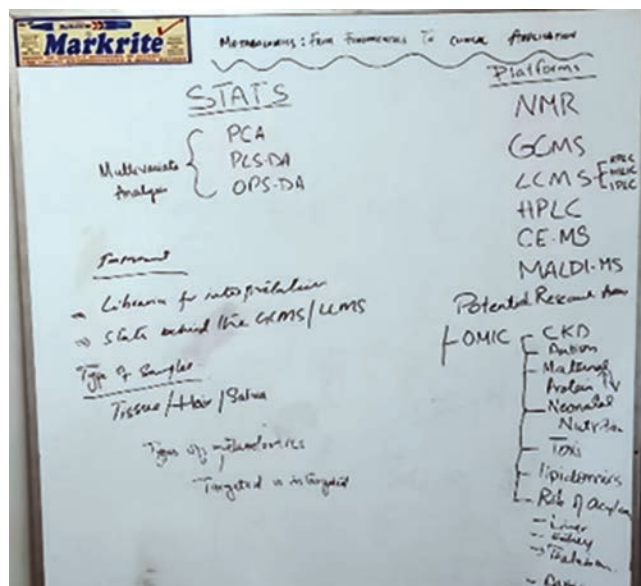 Markrite
METABOLOMICS: FROM FUNDAMENTALS TO CLINICAL APPLICATION
STATS
Multivariate Analysis
PCA
PLS-DA
OPS-DA
Libraries for interpretation
Stats behind the GCMS/LCMS
Type of Samples
Tissue/Hair/Saliva
Types of metabolomics
Targeted vs untargeted
Platforms
NMR
GCMS
LCMS
HILIC
HPLC
CE-MS
MALDI-MS
Potential Research Area
OMIC
CKD
Autism
Maternal
Protein
Neonatal
Nutrition
Toxi
lipidomics
Liver
Kidney